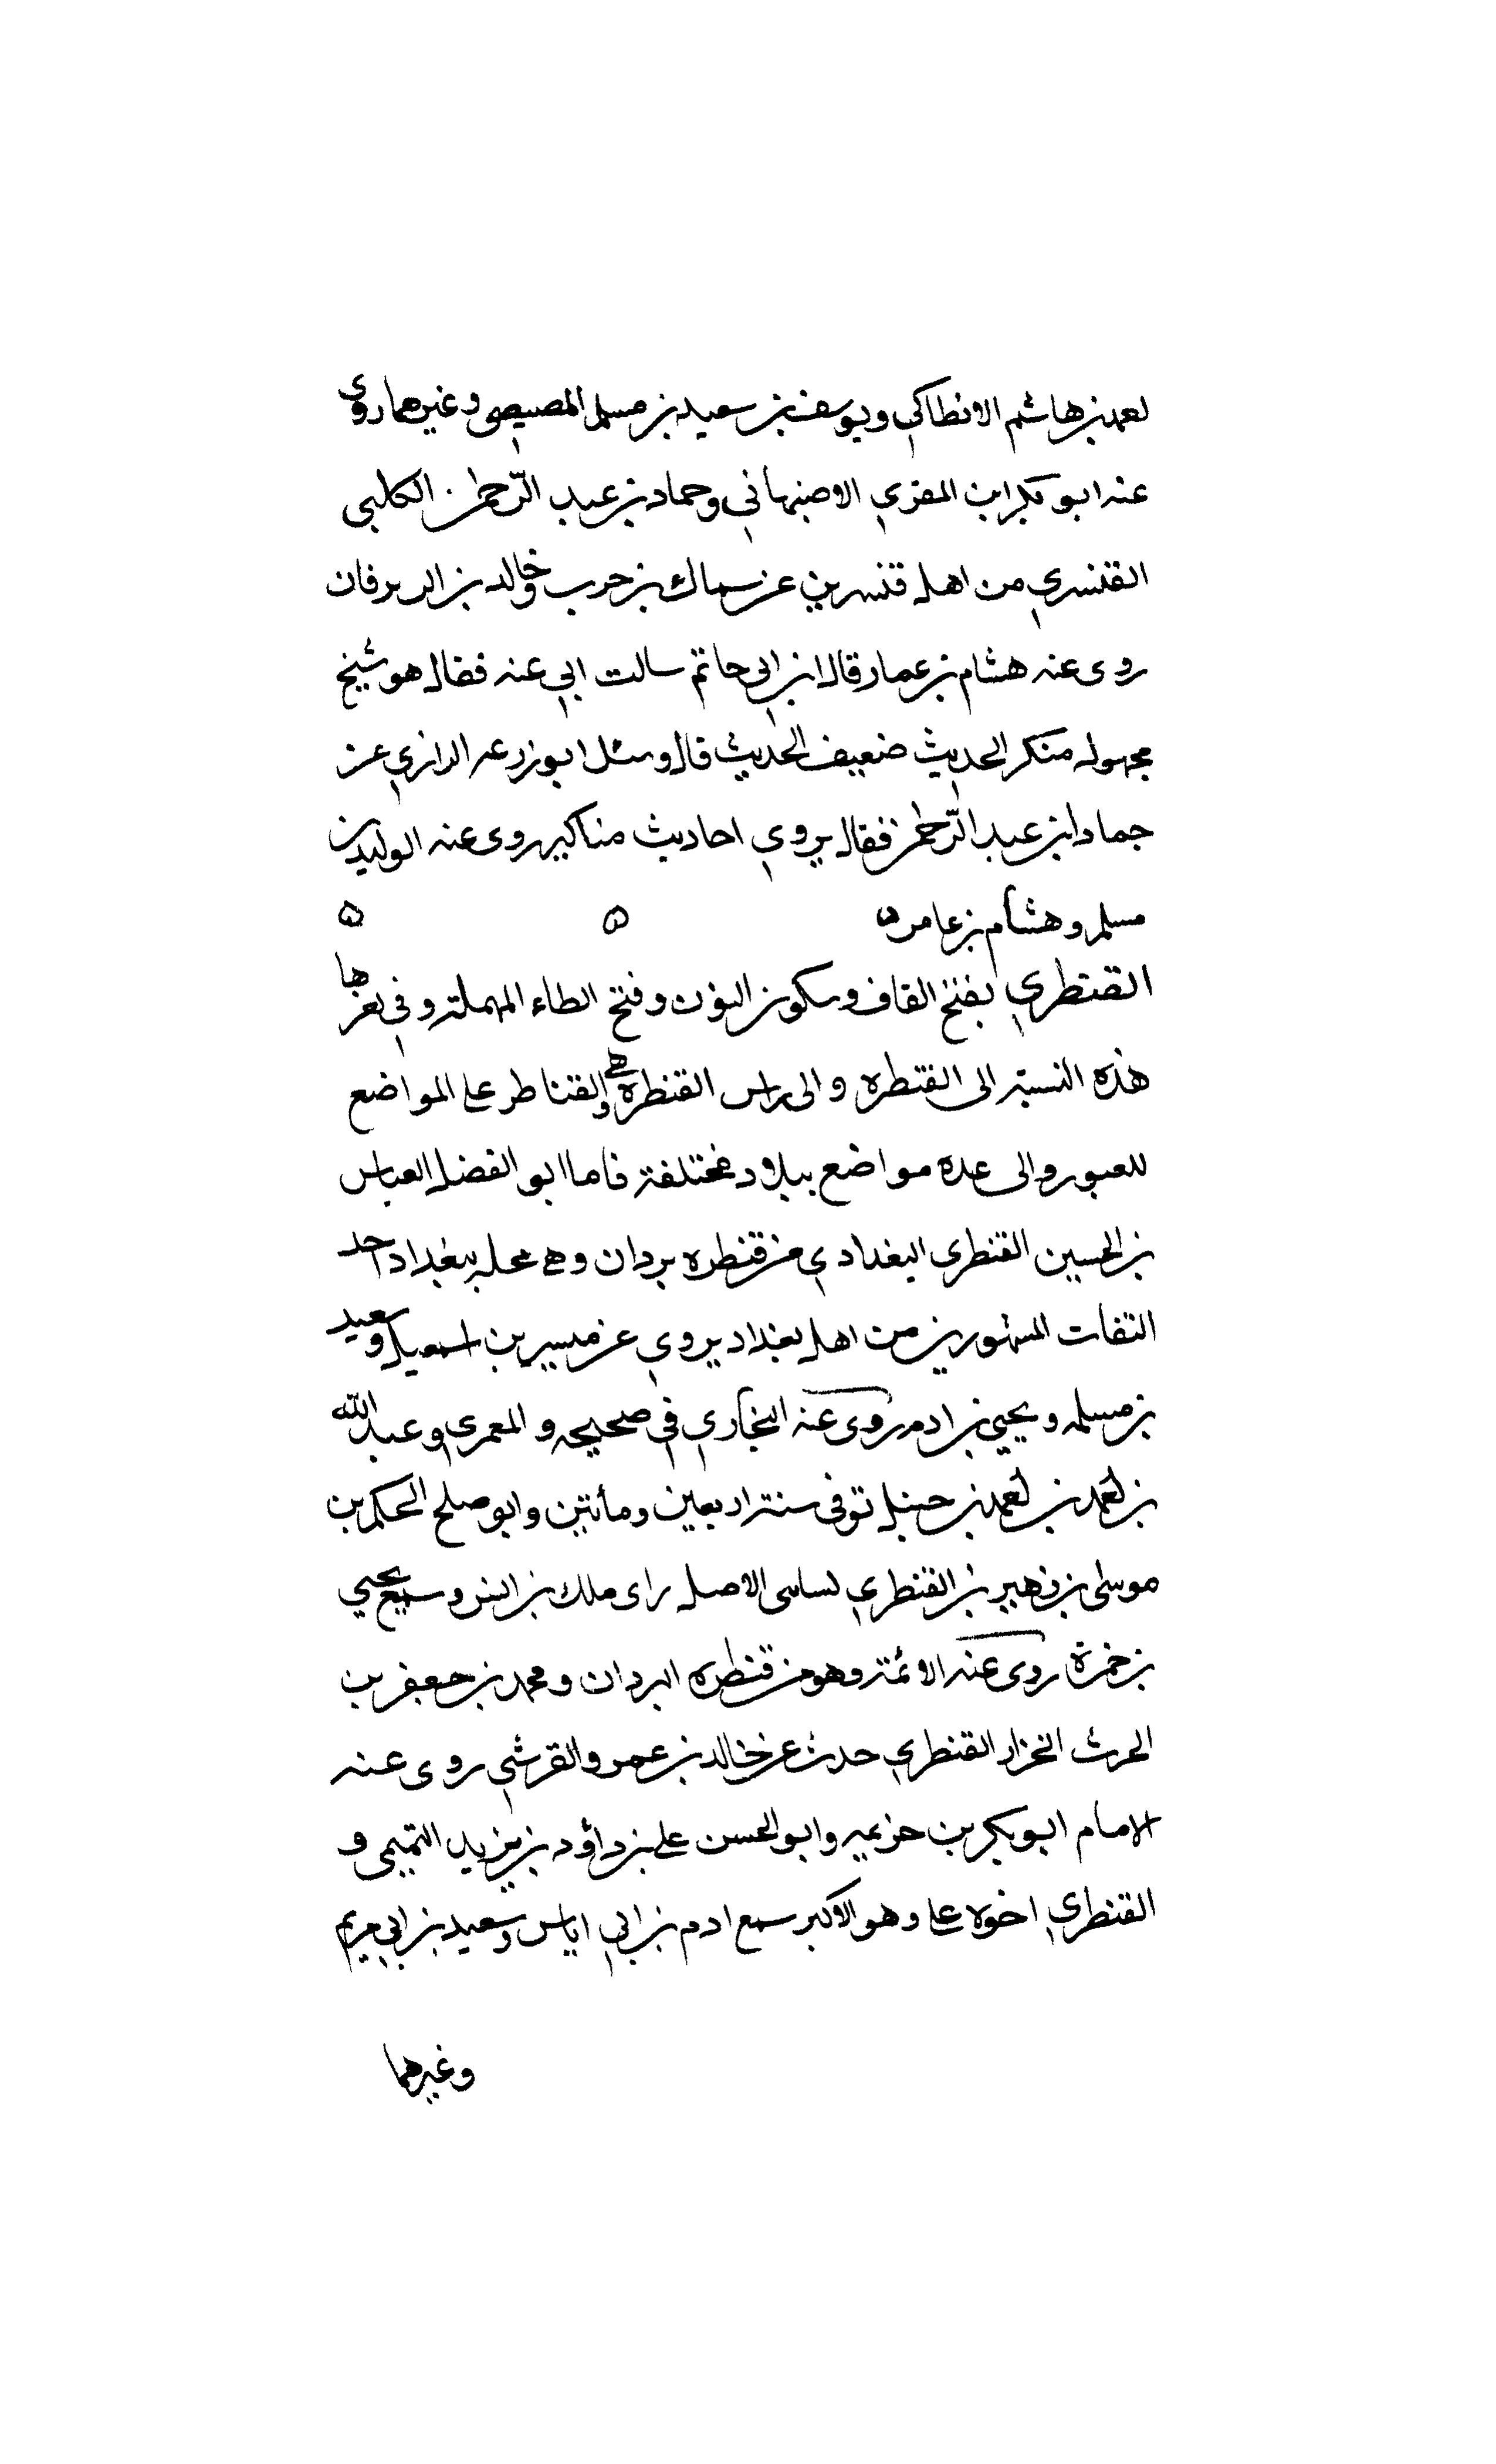 احمد بن هاشم الانطاكي ويوسف بن سعيد بن مسلم المصيصي وغيرهما روى
عنه ابو بكر ابن المقري الاصبهاني وحماد بن عبد الرّحمن الكلبي
القنسري من اهل قنسرين عن سماك بن حرب وخالد بن الزبرقان
روى عنه هشام بن عمار قال ابن ابي حاتم سالت ابي عنه فقال هو شيخ
مجهول منكر الحديث ضعيف الحديث قال وسئل ابو زرعه الرازي عن
حماد ابن عبد الرّحمن فقال يروي احاديث مناكير روى عنه الوليد بن
مسلم وهشام بن عامر ه ه ه
القنطري بفتح القاف وسكون النون وفتح الطاء المهملة وفي اخرها
هذه النسبة الى القنطره والى راس القنطره وهي القناطر على المواضع
للعبور والى عدة مواضع ببلاد مختلفة فاما ابو الفضل العباس
بن الحسين القنطرى البغدادي من قنطره بردان وهي محله ببغداد احد
الثقات المشهورين من اهل بغداد يروي عن مبشر بن اسمعيل وسعيد
بن مسلمه ويحيى بن ادم روى عنه البخاري في صحيحه والمعمري وعبد الله
بن احمد بن احمد بن حنبل توفى سنة اربعين ومأتين وابو صلح الحكم بن
موسى بن زهير بن القنطري نسامى الاصل راى ملك بن انس وسمع يحيي
بن حمزة روى عنه الائمة وهو من قنطره البردان ومحمد بن جعفر بن
الحرث الخزاز القنطري حدث عن خالد بن عمرو القرشي روى عنه
الامام ابو بكر بن خزيمه وابو الحسن علي بن داؤد بن يزيد التميمى و
القنطري اخوه على وهو الاكبر سمع ادم بن ابي اياس وسعيد بن ابي مريم
وغيرهما